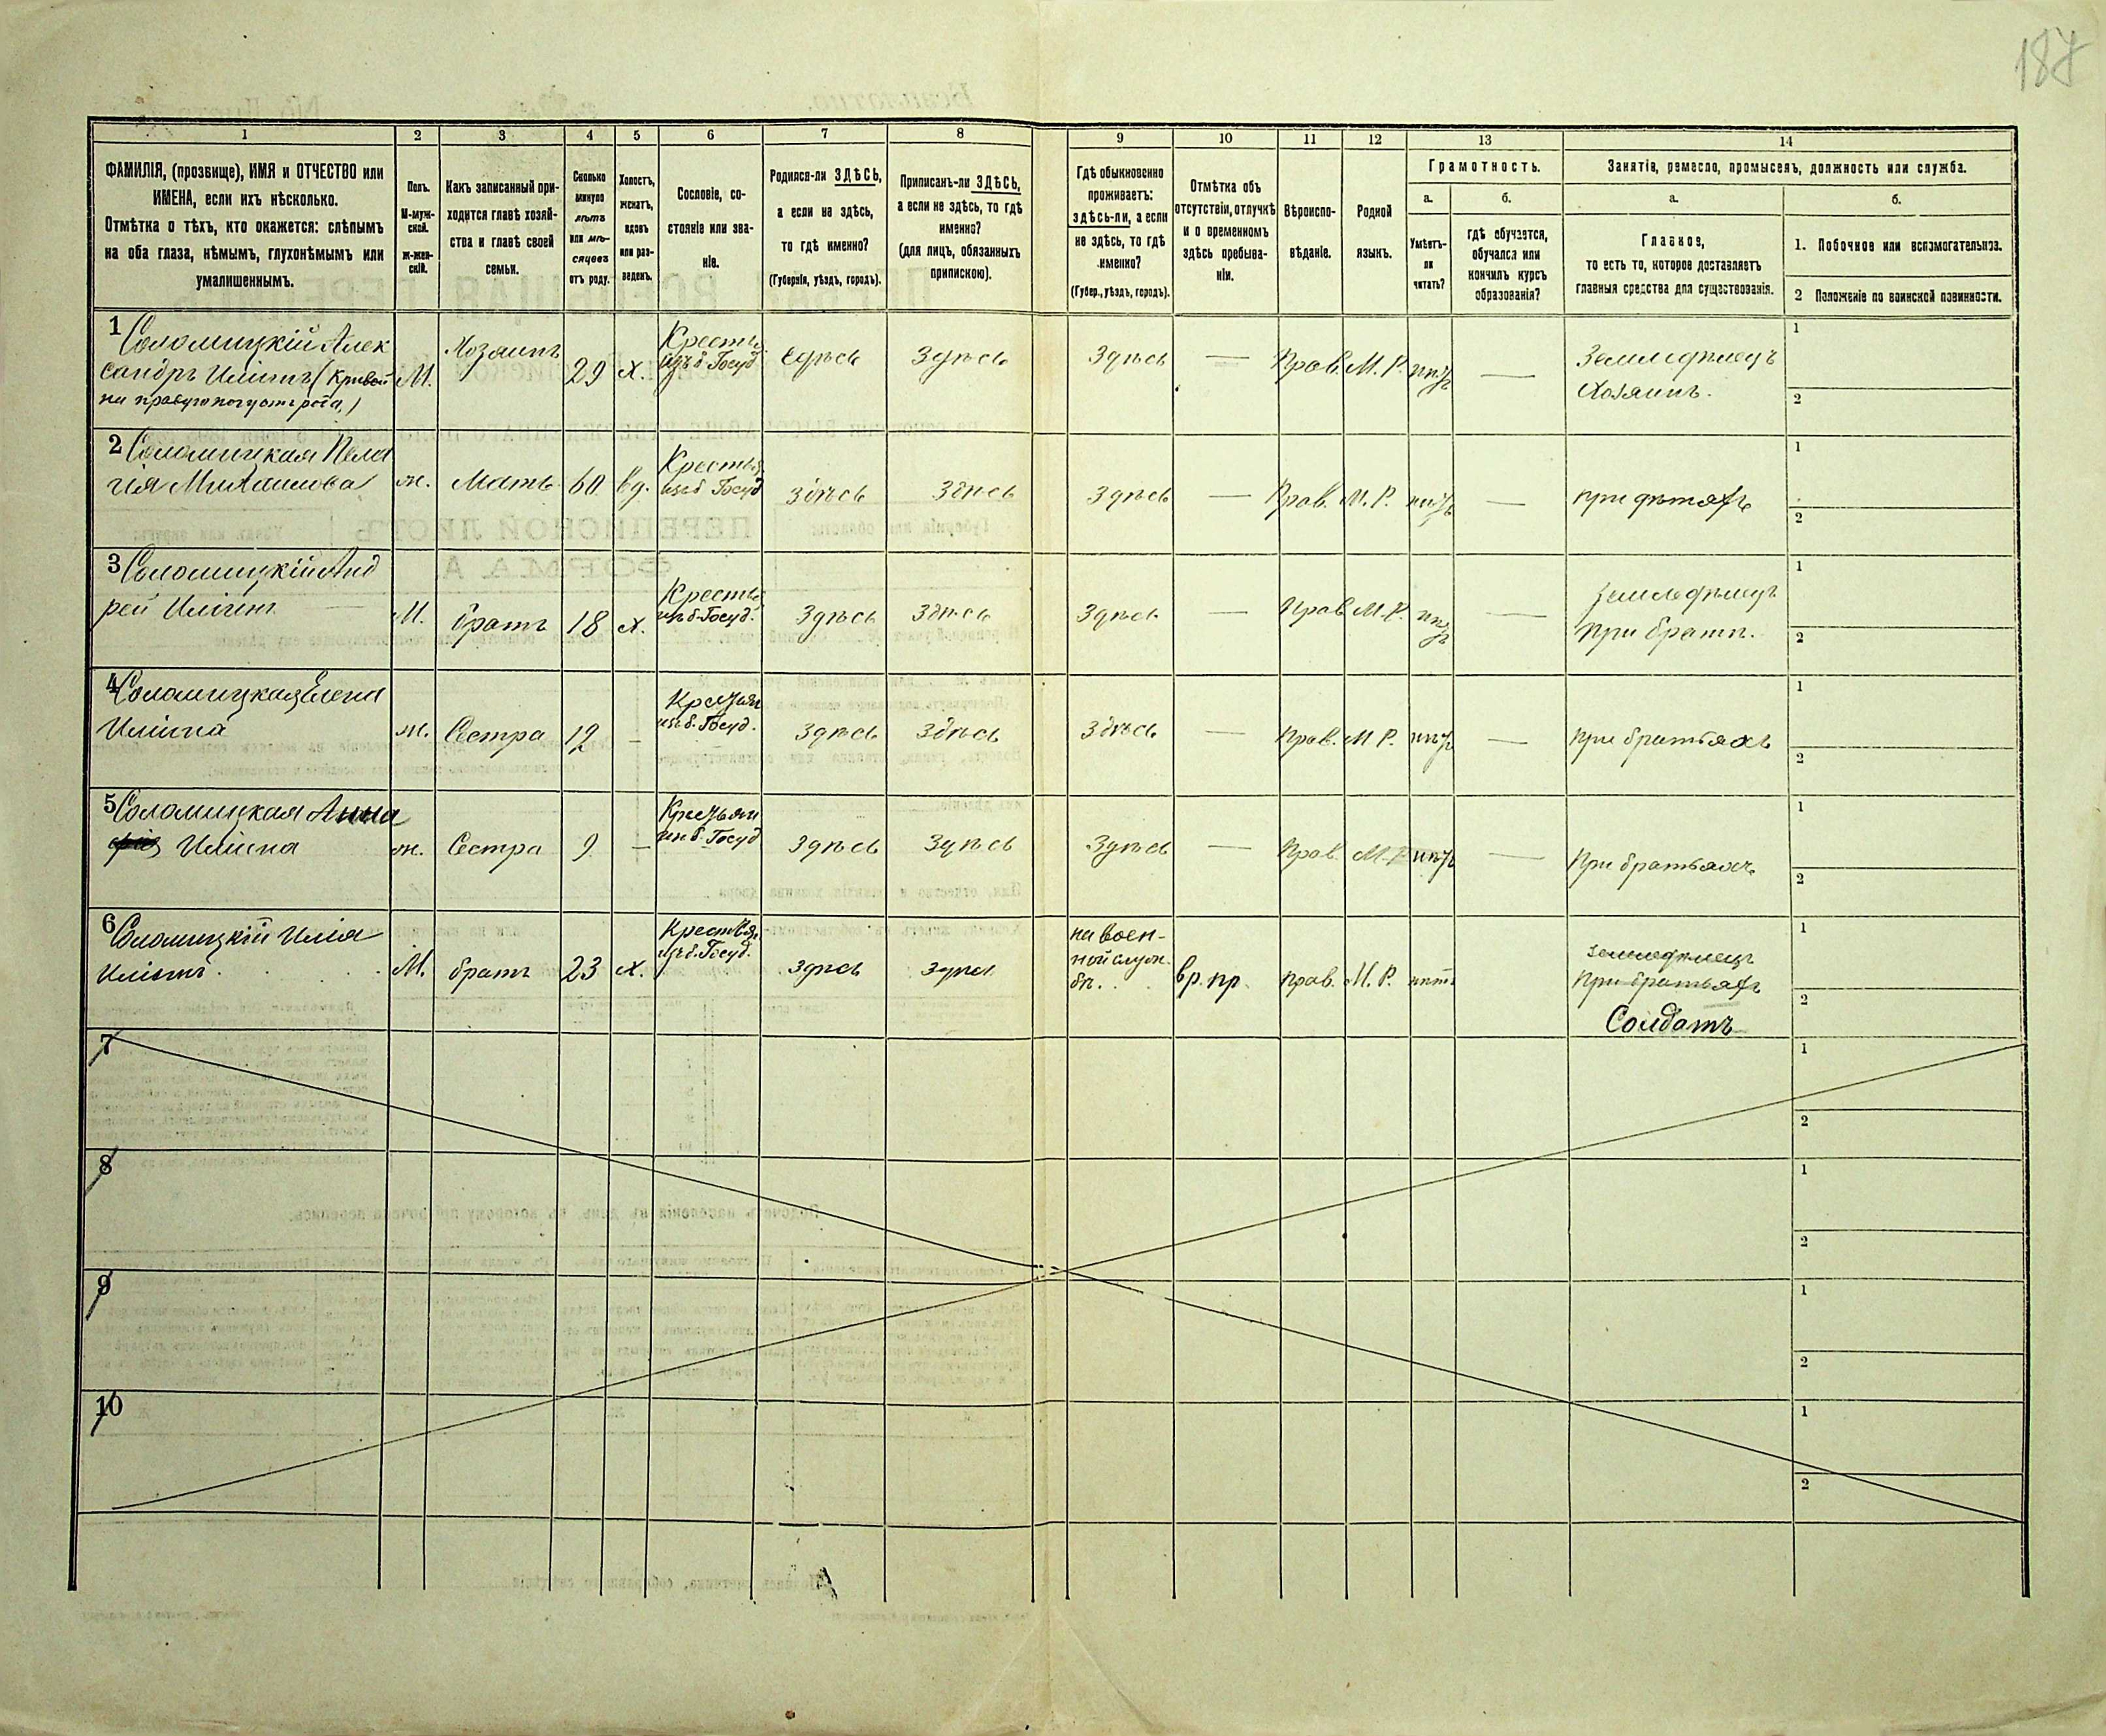 187
1
2
3
4
5
6
7
8
9
10
11
12
13
14
ФАМИЛІЯ, (прозвище), ИМЯ и ОТЧЕСТВО или
ИМЕНА, если ихъ нѣсколько.
Отмѣтка о тѣхъ, кто окажется: слѣпымъ
на оба глаза, нѣмымъ, глухонѣмымъ или
умалишеннымъ.
Полъ.
М-муж-
ской.
Ж-жен-
скій.
Какъ записанный при-
ходится главѣ хозяй-
ства и главѣ своей
семьи.
Сколько
минуло
лѣтъ
или мѣ-
сяцевъ
отъ роду.
Холостъ,
женатъ,
вдовъ
или раз-
веденъ.
Сословіе, со-
стояніе или зва-
ніе.
Родился-ли ЗДѢСЬ,
а если не здѣсь,
то гдѣ именно?
(Губернія, уѣздъ, городъ).
Приписанъ-ли ЗДѢСЬ,
а если не здѣсь, то гдѣ
именно?
(для лицъ, обязанныхъ
припискою).
Гдѣ обыкновенно
проживаетъ:
здѣсь-ли, а если
не здѣсь, то гдѣ
именно?
(Губер., уѣздъ, городъ).
Отмѣтка объ
отсутствіи, отлучкѣ
и о временномъ
здѣсь пребыва-
ніи.
Вѣроиспо-
вѣданіе.
Родной
языкъ.
Грамотность.
а.
Умѣетъ-
ли
читать?
б.
гдѣ обучается,
обучался или
кончилъ курсъ
образованія?
Занятіе, ремесло, промыселъ, должность или служба.
а.
Главное,
то есть то, которое доставляетъ
главныя средства для существованія.
б.
1. Побочное или вспомогательное.
2 Положеніе по воинской повинности.
1 Соломицкій Алек
сандръ Иліинъ (Кривой
М. Хозяинъ 29 х. Крестья изъ б. Госуд здѣсь Здѣсь Здѣсь — Прав. М. Р. нѣтъ — Земледѣлецъ
Хозяинъ.
1
2
2 Соломицкая Пела
гія Михаилова ж. Мать 60 вд. Крестья изъ б Госуд здѣсь Здѣсь Здѣсь — Прав. М. Р. нѣтъ — при дѣтяхъ
1
2
3 Соломицкій Анд
рей Иліинъ М. братъ 18 х. Крестья изъ б. Госуд. Здѣсь Здѣсь Здѣсь — Прав М. Р. нѣтъ — земледѣлецъ
при братѣ.
1
2
4 Соломицкая Елена
Иліина ж. Сестра 12 — Крестьян изъ б. Госуд. Здѣсь Здѣсь Здѣсь — Прав. М Р. нѣтъ — при братьяхъ
1
2
5 Соломицкая Анна
Иліина ж. Сестра 9 — Крестьян изъ б. Госуд Здѣсь Здѣсь Здѣсь — Прав. М. Р нѣтъ — При братьяхъ
1
2
6 Соломицкій Илія
Иліинъ. М. братъ 23 х. Крестьян. изъ б. Госуд. здѣсь здѣсь на воен-
ной служ-
бѣ. вр. пр. прав. М. Р. нѣтъ земледѣлецъ
При братьяхъ
Солдатъ
1
2
7
1
2
8
1
2
9
1
2
10
1
2